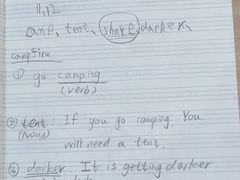 camp、tent、share、darker、
campfire
① go camping
(verb)
② tent : If you go camping. You
(Noun) will need a tent.
③ darker. It is getting darker